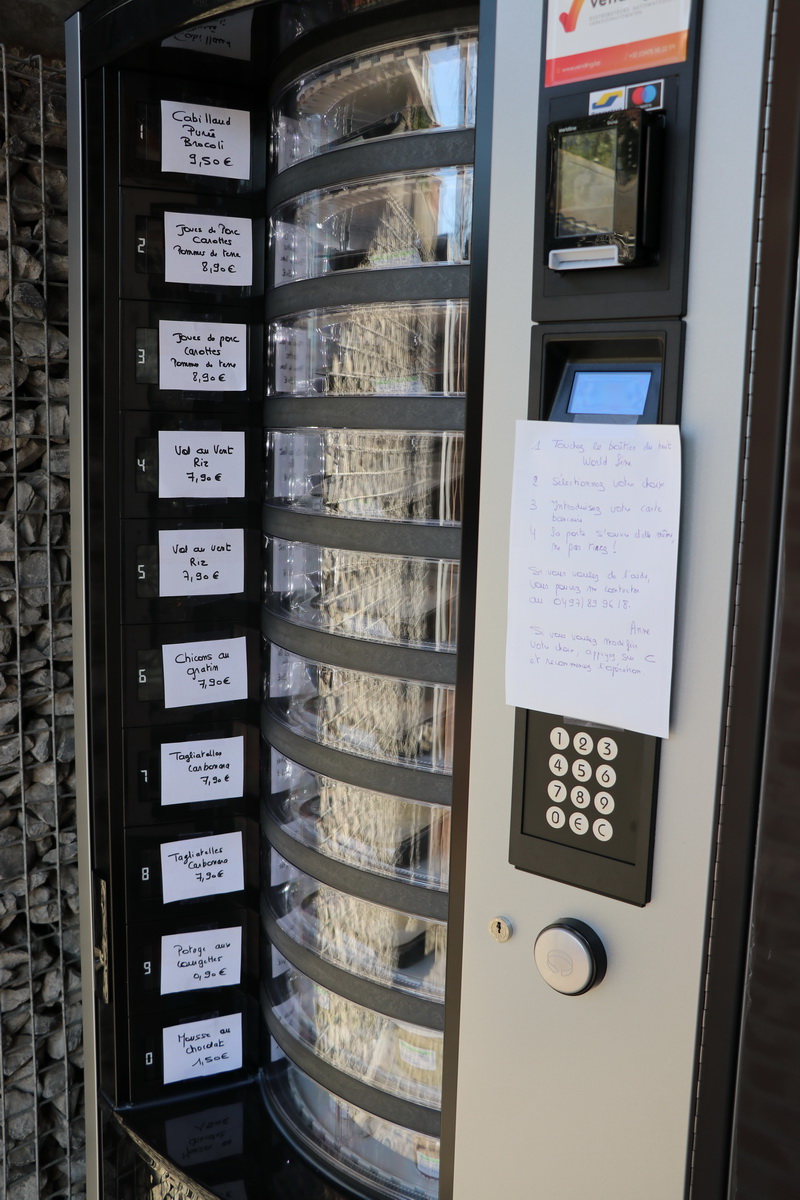 1
Cabillaud
Purée
Brocoli
9,50€
2
Joues de Porc
Carottes
Pommes de terre
8,90€
3
Joues de porc
Carottes
Pommes de terre
8,90€
4
Vol au Vent
Riz
7,90€
5
Vol au Vent
Riz
7,90€
6
Chicons au
gratin
7,90€
7
Tagliatelles
Carbonara
7,90€
8
Tagliatelles
Carbonara
7,90€
9
Potage aux
courgettes
0,90€
0
Mousse au
chocolat
1,50€
1 Touchez le boîtier
World line
2 Sélectionnez votre choix
3 Introduisez votre carte
bancaire
4 La porte s'ouvre d'elle même,
ne pas tirez !
Si vous voulez de l'aide,
vous pouvez me contacter
au
Anne
Si vous voulez modifier
votre choix, appuyez sur C
et recommencez l'opération
1 2 3
4 5 6
7 8 9
0 € C